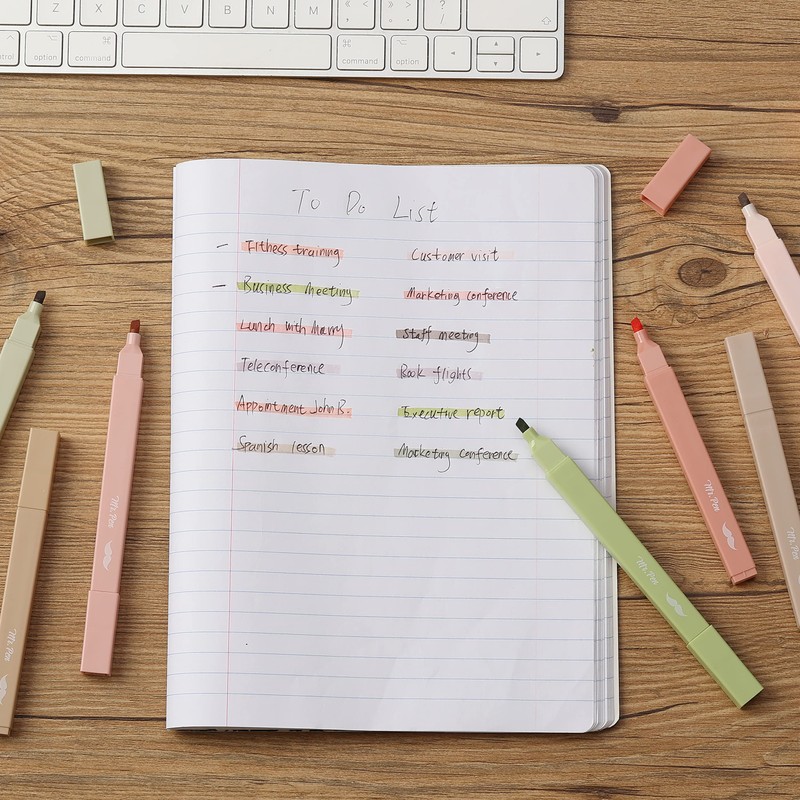 Z X C V B N M < > ? /
control option command command option
To Do List
- Fithess training Customer visit
- Business meeting Marketing conference
Lunch with Marry Staff meeting
Teleconference Book flights
Appointment John B. Executive report
Spanish lesson Marketing conference
Mr. Pen
Mr. Pen
Mr. Pen
Mr. Pen